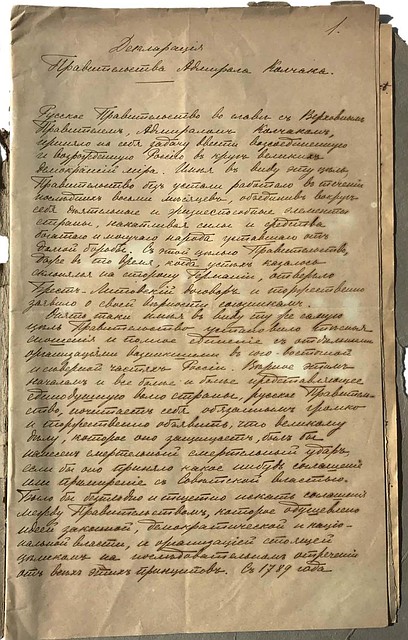 1.
Декларація
Правительства Адмирала Колчака.
Русское Правительство во главѣ съ Верховнымъ
Правителемъ, Адмираломъ Колчакомъ,
приняло на себя задачу ввести возсоединенную
и возрожденную Россію въ кругъ великихъ
демократій міра. Имѣя въ виду эту цѣль,
Правительство безъ устали работало въ теченіи
послѣднихъ восьми мѣсяцевъ, объединивъ вокругъ
себя дѣятельные и жизнеспособные элементы
страны, накапливая силы и средства
богатаго и могучаго народа уставшаго отъ
долгой борьбы. Съ этой цѣлью Правительство,
даже въ то время, когда успѣхъ казалось
склонялся на сторону Германіи, отвергло
Брестъ-Литовскій договоръ и торжественно
заявило о своей вѣрности союзникамъ.
Опять таки имѣя въ виду ту же самую
цѣль Правительство установило тѣсныя
сношенія и полное единеніе съ отдѣльными
организаціями возникшими въ юго-восточной
и сѣверной частяхъ Россіи. Вѣрное этимъ
началамъ и все болѣе и болѣе представляющее
единодушную волю страны, русское Правитель-
ство, почитаетъ себя обязаннымъ громко
и торжественно объявить, что великому
дѣлу, которое оно защищаетъ, былъ бы
нанесенъ смертельной смертельной ударъ,
если бы оно приняло какое нибудь соглашеніе
или примиреніе съ совѣтской властью.
Было бы бытовло и тщетно искать соглашенія
между Правительствомъ, которое одушевлено
идеей законной, демократической и націо-
нальной власти, и организаціей стоящей
цѣликомъ на послѣдовательномъ отреченіи
отъ всѣхъ этихъ принциповъ. Съ 1789 года